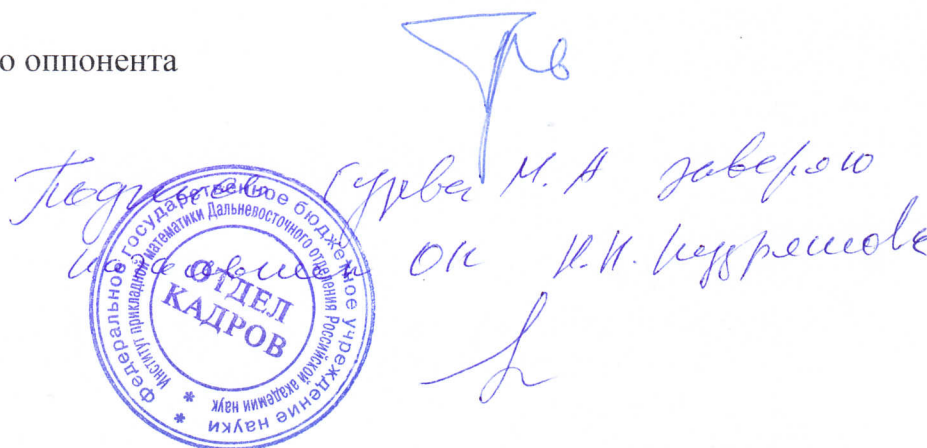 о оппонента
Подпись Гузева М. А заверяю
начальник ОК Н.Н. Кудряшова
Федеральное государственное бюджетное учреждение науки
Институт прикладной математики Дальневосточного отделения Российской академии наук
ОТДЕЛ
КАДРОВ